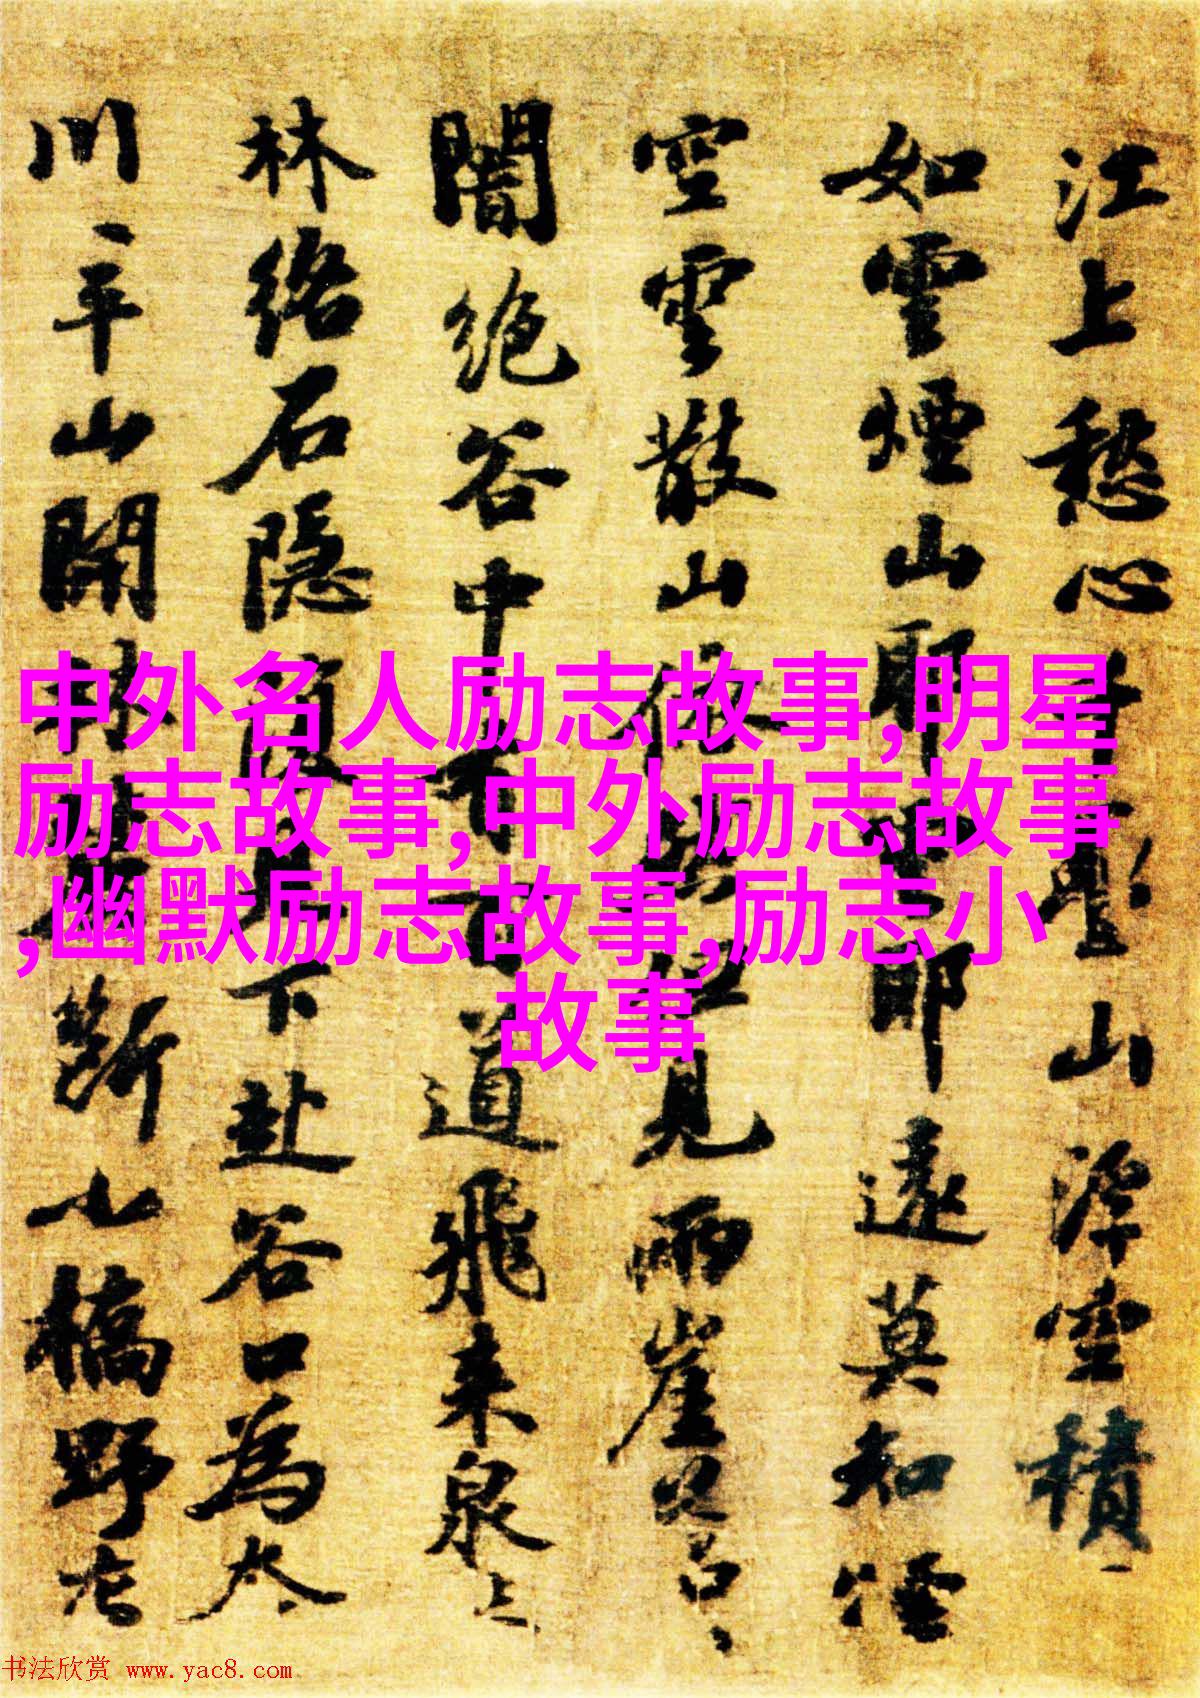 江上愁心千疊山浮空積
如雲煙山耶雲耶遠莫知煙
空雲散山依然但見兩崖
闇絶谷中有百道飛来泉
林絡石隱復見下赴谷口為
川平山開林麓斷小橋野
中外名人励志故事,明星
励志故事,中外励志故事
,幽默励志故事,励志小
故事
书法欣赏 www.yac8.com